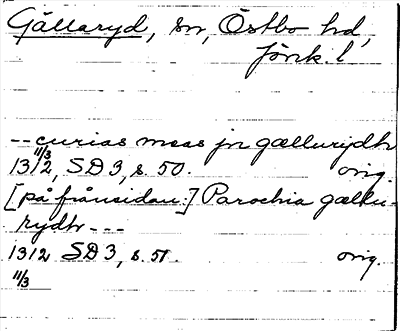 Gällaryd, sn, Östbo hd,
Jönk. l
-- curias meas jn gællurydh
11/3
1312, SD 3, s. 50. orig.
[på frånsidan:] Parochia gællu-
rydh ---
1312 SD 3, s. 51. orig.
11/3